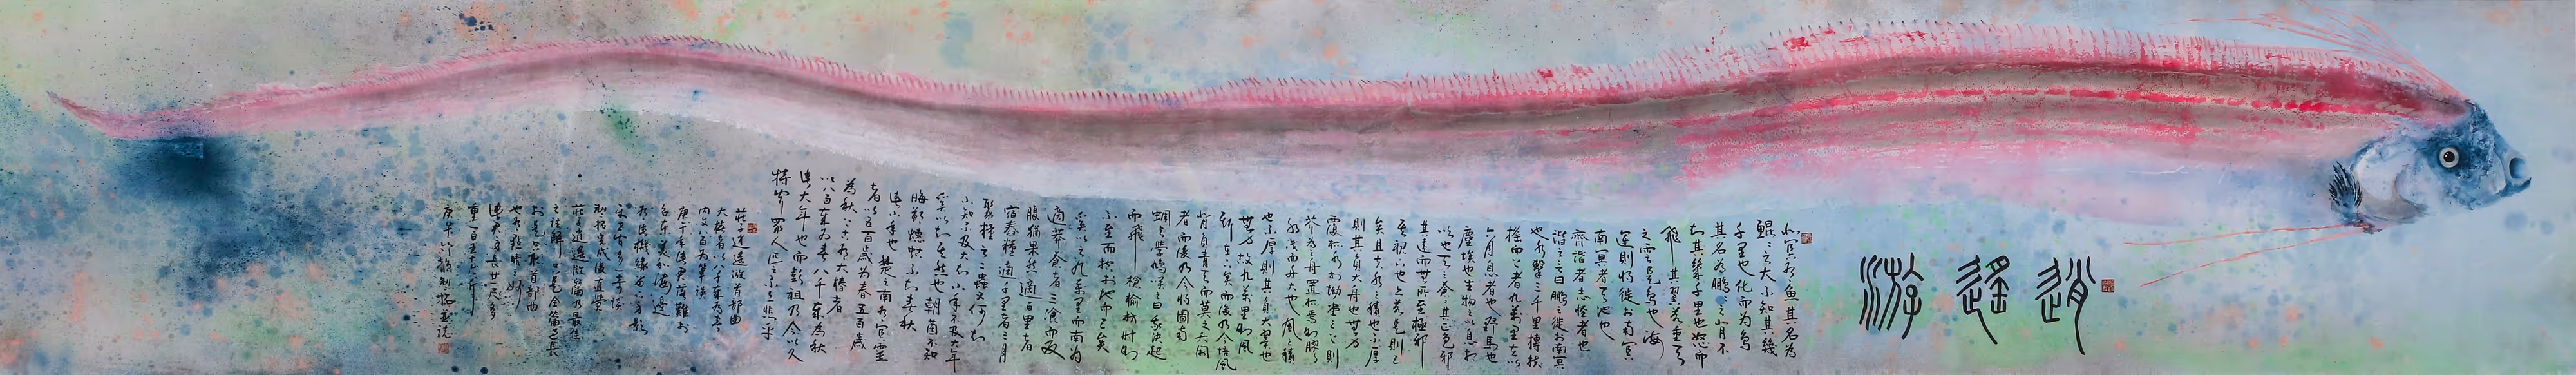 逍遙游
北冥有魚其名為
鯤鯤之大不知其幾
千里也化而為鳥
其名為鵬鵬之背不
知其幾千里也怒而
飛其翼若垂天
之雲是鳥也海
運則將徙於南冥
南冥者天池也
齊諧者志怪者也
諧之言曰鵬之徙於南冥
也水擊三千里摶扶
搖而上者九萬里去以
六月息者也野馬也
塵埃也生物之以息相
吹也天之蒼蒼其正色邪
其遠而無所至極邪
其視下也亦若是則已
矣且夫水之積也不厚
則其負大舟也無力
覆杯水於坳堂之上則
芥為之舟置杯焉則膠
水淺而舟大也風之積
也不厚則其負大翼也
無力故九萬里則風
斯在下矣而後乃今培風
背負青天而莫之夭閼
者而後乃今將圖南
蜩與學鳩笑之曰我決起
而飛槍榆枋時則
不至而控於地而已矣
奚以之九萬里而南為
適莽蒼者三飡而反
腹猶果然適百里者
宿舂糧適千里者三月
聚糧之二蟲又何知
小知不及大知小年不及大年
奚以知其然也朝菌不知
晦朔蟪蛄不知春秋
此小年也楚之南有冥靈
者以五百歲為春五百歲
為秋上古有大椿者
以八百歲為春八千歲為秋
此大年也而彭祖乃今以久
特聞眾人匹之不亦悲乎
莊子逍遙游首部曲
大椿者以八千歲為春
內文百為筆誤
庚子年落難於
台東海邊
莊子逍遙游篇乃最佳
之註解只是全篇過長
於是只取首部曲
身長廿一尺多
重一百五十七斤